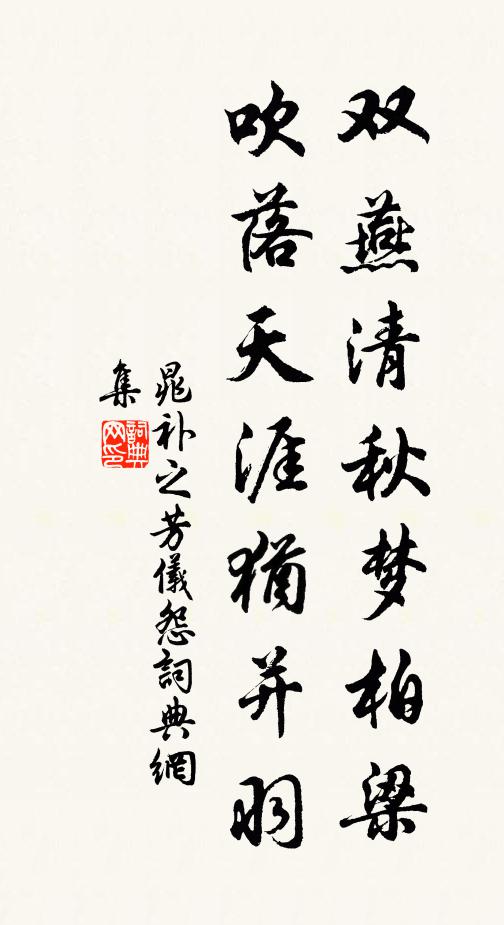 双燕清秋梦柏梁
吹落天涯犹并羽
晁补之芳儀怨詞典網
集
詞典
网印